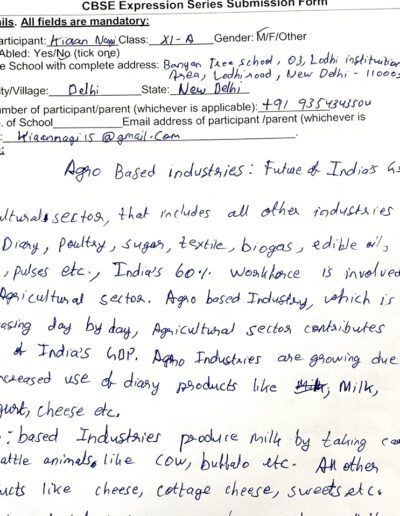 CBSE Expression Series Submission Form
ils. All fields are mandatory:
articipant: Kiaan Nagi Class: XI-A Gender: M/F/Other
Abled: Yes/No (tick one)
e School with complete address: Banyan Tree school, 03, Lodhi institution
Area, Lodhi road, New Delhi - 11000
ity/Village: Delhi State: New Delhi
umber of participant/parent (whichever is applicable): +91
. of School Email address of participant /parent (whichever is
: Kiaannagi15@gmail.com
:
Agro Based industries: Future of India's G
ultural sector, that includes all other industries
Diary, Poultry, sugar, textile, biogas, edible oil,
, pulses etc., India's 60% workforce is involved
Agricultural sector. Agro based Industry, which is
asing day by day, Agricultural sector contributes
of India's GDP. Agro Industries are growing due
ncreased use of diary products like Milk,
gurt, cheese etc.
: based Industries produce milk by taking ca
attle animals, like cow, buffalo etc. All other
ucts like cheese, cottage cheese, sweets etc.